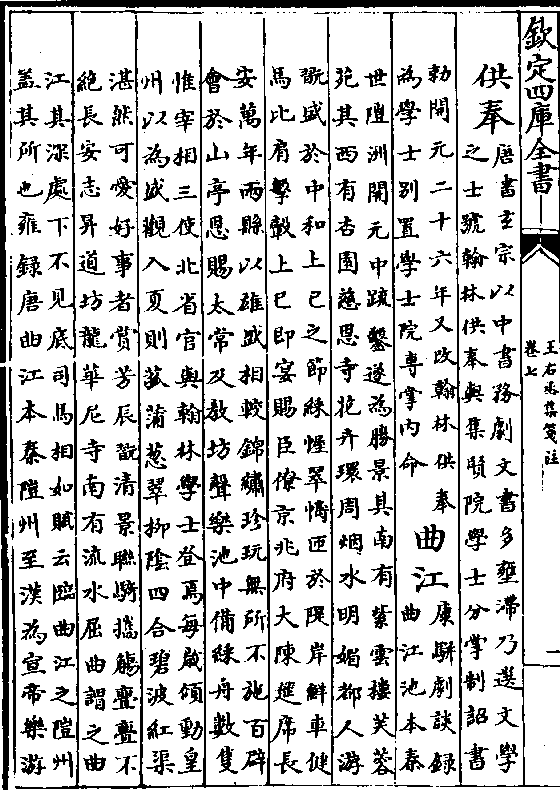 欽定四庫全書
王右丞集箋註
卷七
一
供奉
唐書玄宗以中書務劇文書多壅滯乃選文學
之士號翰林供奉與集賢院學士分掌制詔書
勅開元二十六年又改翰林供奉
為學士別置學士院專掌內命
曲江
康駢劇談録
曲江池本秦
世隑洲開元中疏鑿遂為勝景其南有紫雲樓芙蓉
苑其西有杏園慈恩寺花卉環周烟水明媚都人游
翫盛於中和上巳之節綵幄翠幬匝於隄岸鮮車健
馬比肩擊轂上巳即宴賜臣僚京兆府大陳筵席長
安萬年兩縣以雄盛相較錦繡珍玩無所不施百辟
會於山亭恩賜太常及教坊聲樂池中備綵舟數隻
惟宰相三使北省官與翰林學士登焉每歲傾動皇
州以為盛觀入夏則菰蒲葱翠柳陰四合碧波紅渠
湛然可愛好事者賞芳辰翫清景聯騎攜觴亹亹不
絶長安志昇道坊龍華尼寺南有流水屈曲謂之曲
江其深處下不見底司馬相如賦云臨曲江之隑州
盖其所也雍録唐曲江本秦隑州至漢為宣帝樂游